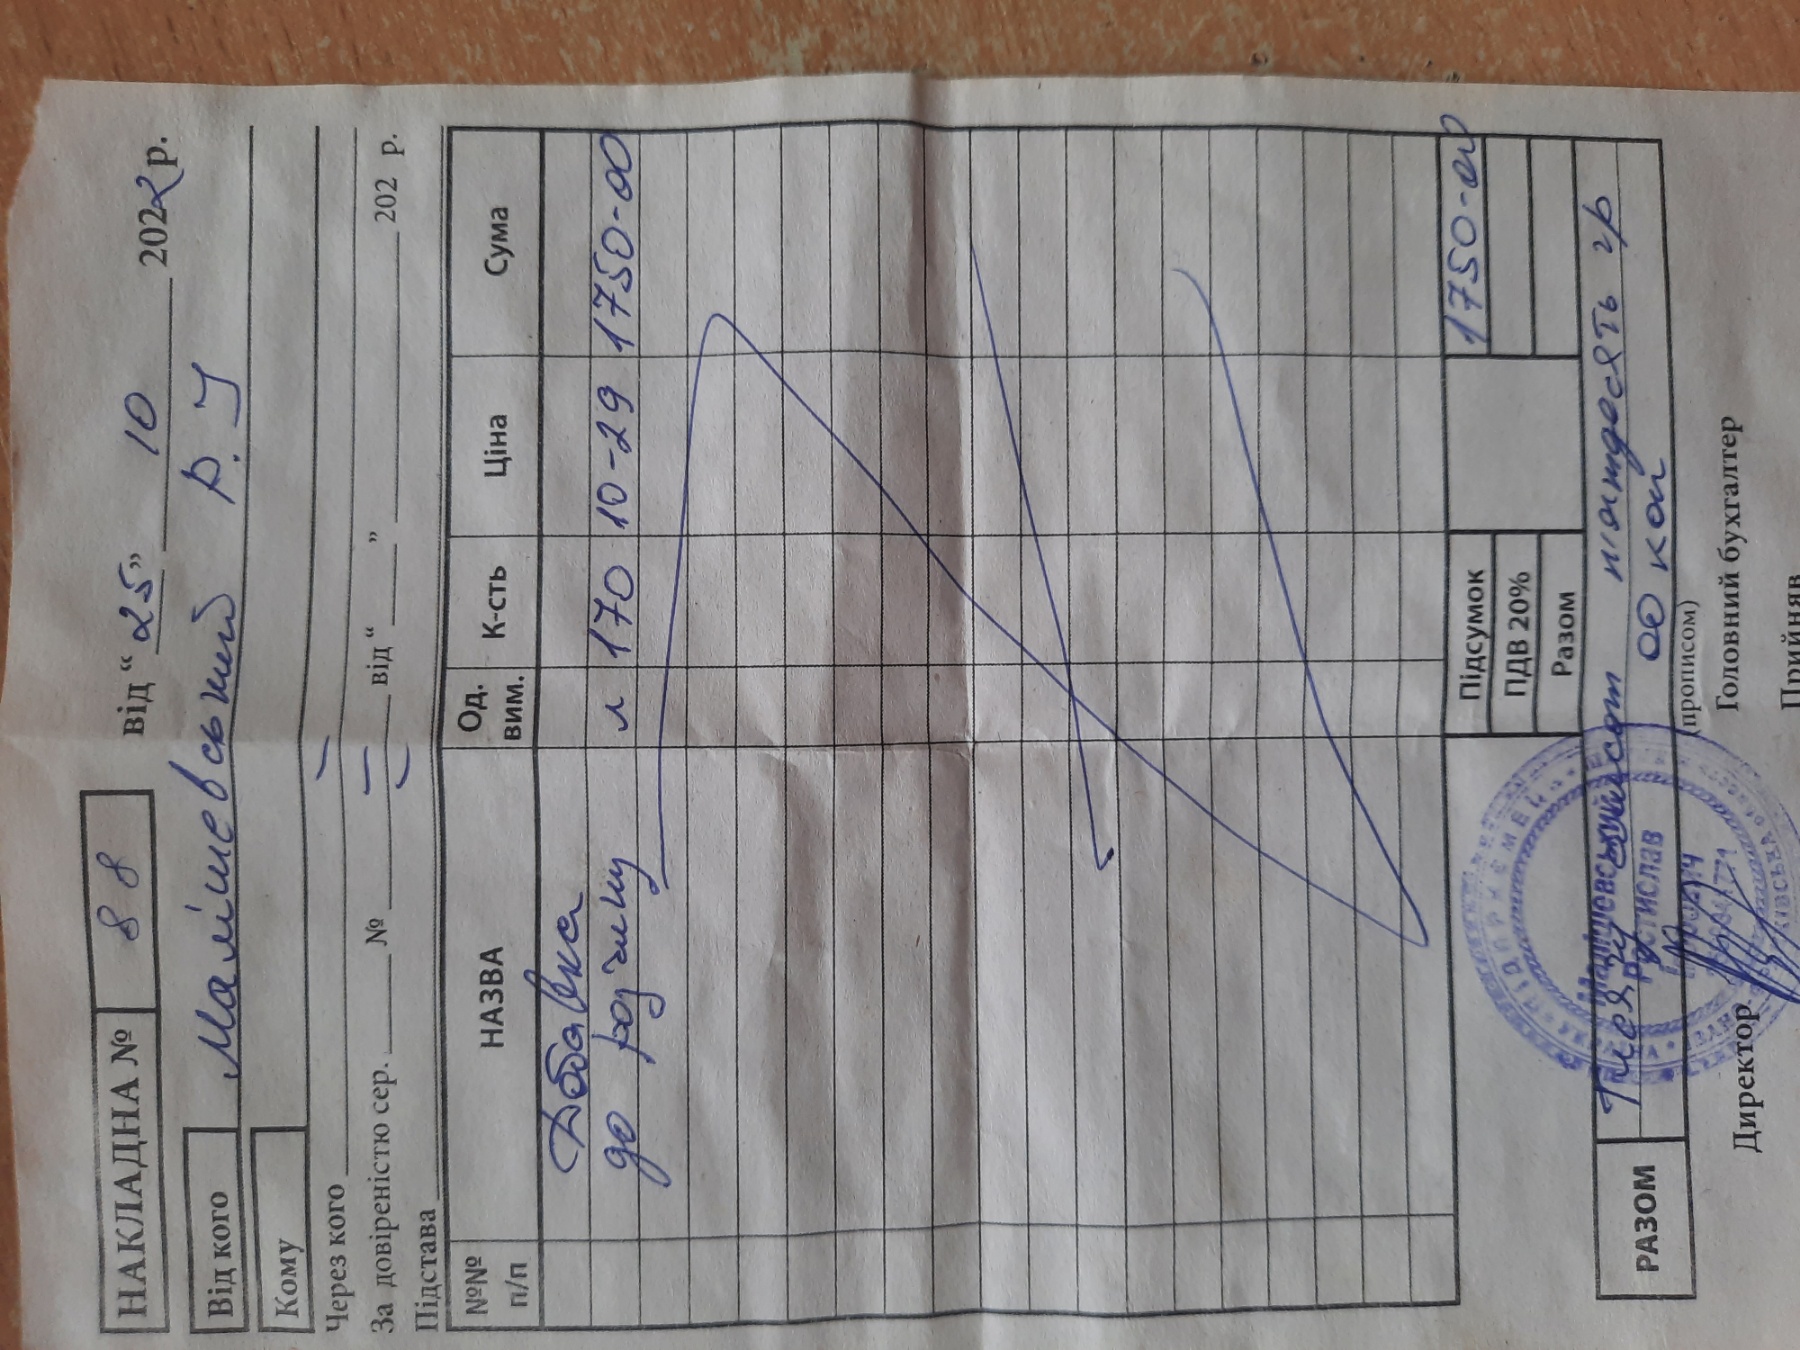 НАКЛАДНА № 88 від “25” 10 2022р.
Від кого Малішевський Р. І
Кому
Через кого
За довіреністю сер. № від “ ” 202 р.
Підстава
№№ п/п НАЗВА Од. вим. К-сть Ціна Сума
Добавка
до розчину л 170 10-29 1750-00
Підсумок 1750-00
ПДВ 20%
Разом
РАЗОМ Тисяча сімсот п'ятдесять гр
00 коп
(прописом)
Директор Головний бухгалтер
Прийняв
ПІДПРИЄМЕЦЬ
Малішевський
Руслав